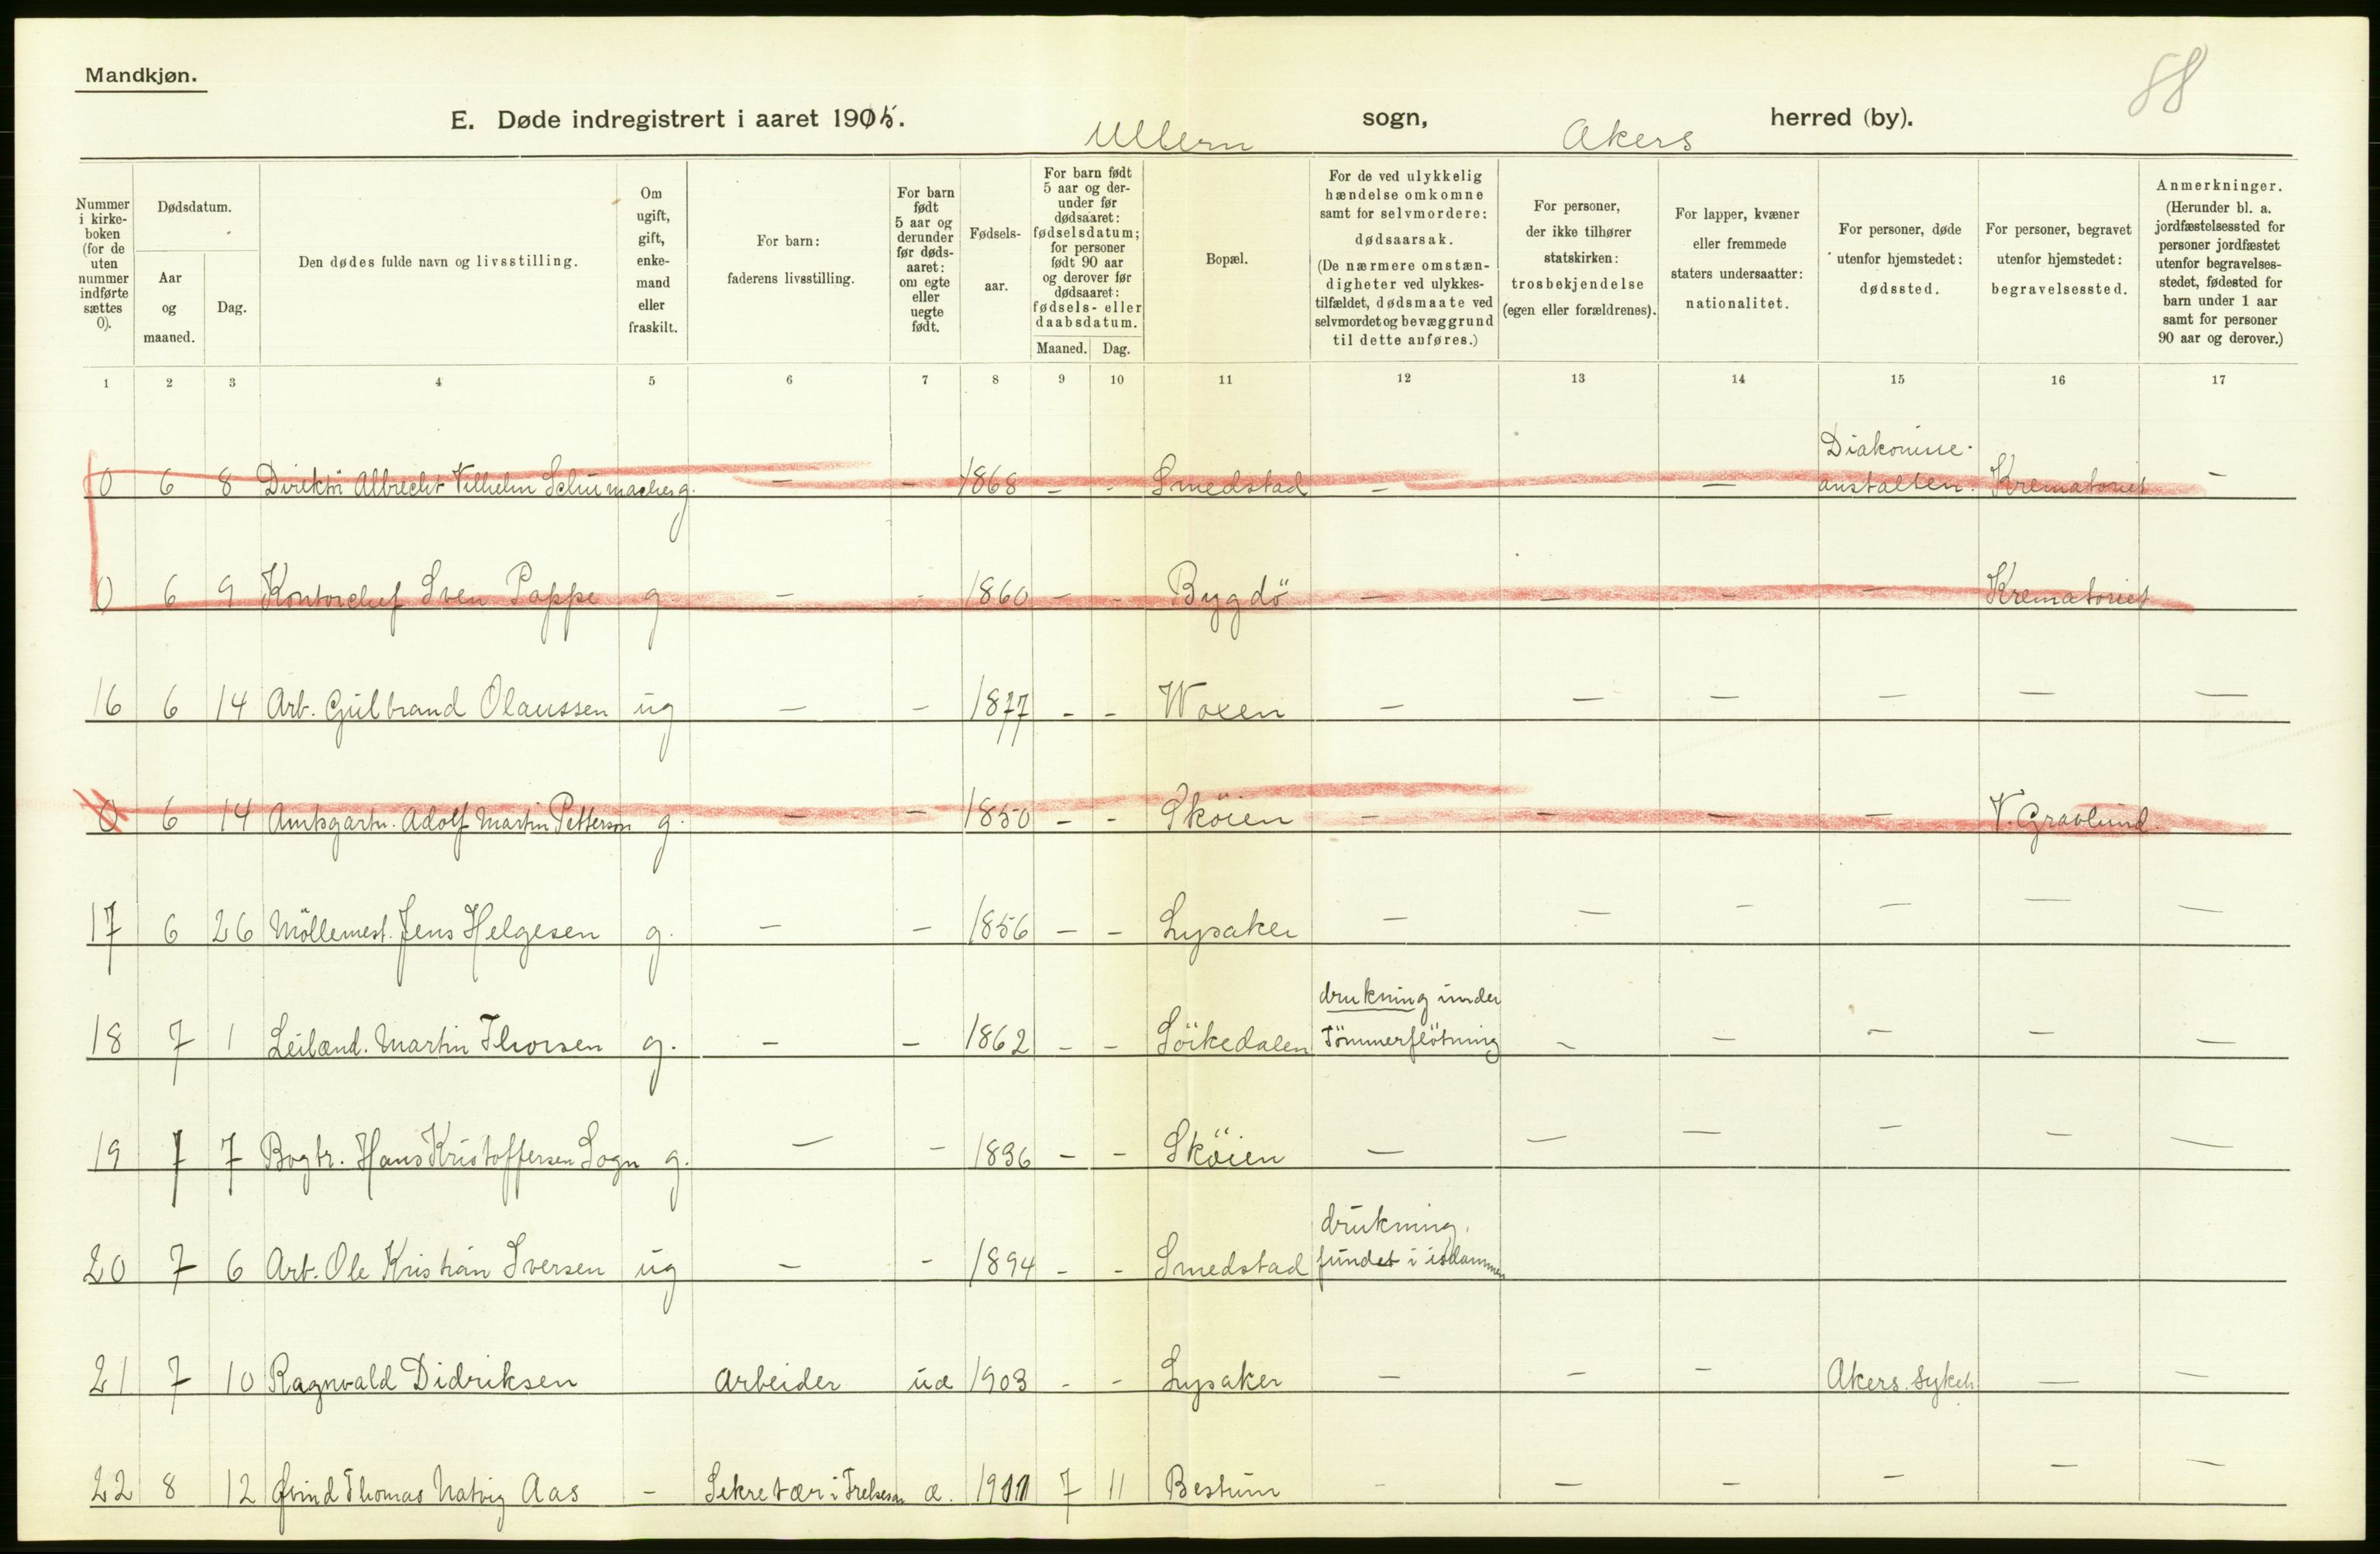 Mandkjøn.
88
E. Døde indregistrert i aaret 1915. Ullern sogn, Akers herred (by).
Nummer i kirke- boken (for de uten nummer indførte sættes 0).
Dødsdatum.
Aar og maaned.
Dag.
Den dødes fulde navn og livsstilling.
Om ugift, gift, enke- mand eller fraskilt.
For barn: faderens livsstilling.
For barn født 5 aar og derunder før døds- aaret: om egte eller uegte født.
Fødsels- aar.
For barn født 5 aar og der- under før dødsaaret: fødselsdatum; for personer født 90 aar og derover før dødsaaret: fødsels- eller daabsdatum.
Maaned. Dag.
Bopæl.
For de ved ulykkelig hændelse omkomne samt for selvmordere: dødsaarsak. (De nærmere omstæn- digheter ved ulykkes- tilfældet, dødsmaate ved selvmordet og bevæggrund til dette anføres.)
For personer, der ikke tilhører statskirken: trosbekjendelse (egen eller forældrenes).
For lapper, kvæner eller fremmede staters undersaatter: nationalitet.
For personer, døde utenfor hjemstedet: dødssted.
For personer, begravet utenfor hjemstedet: begravelsessted.
Anmerkninger. (Herunder bl. a. jordfæstelsessted for personer jordfæstet utenfor begravelses- stedet, fødested for barn under 1 aar samt for personer 90 aar og derover.)
1 2 3 4 5 6 7 8 9 10 11 12 13 14 15 16 17
0 6 8 Direktör Albrecht Vilhelm Schumacher g. – – 1868 – – Smedstad – – Diakonisse- anstalten. Krematoriet –
0 6 9 Kontorchef Sven Pappe g – – 1860 – – Bygdö – – – – Krematoriet
16 6 14 Arb. Gulbrand Olaussen ug – – 1877 – – Woxen – – – – – –
0 6 14 Amtsgartn. Adolf Martin Petterson g. – – 1850 – – Sköien – – – – V. Gravlund.
17 6 26 Möllemest. Jens Helgesen g. – – 1856 – – Lysaker – – – – – –
18 7 1 Leilænd. Martin Thorsen g. – – 1862 – – Sörkedalen drukning under Tömmerflötning – – – – –
19 7 7 Bogtr. Hans Kristoffersen Sogn g. – – 1836 – – Sköien – – – – – –
20 7 6 Arb. Ole Kristian Iversen ug – – 1894 – – Smedstad drukning. fundet i isdammen
21 7 10 Ragnvald Didriksen Arbeider uæ 1903 – – Lysaker – – – Akers. sykeh –
22 8 12 Øvind Thomas Natvig Aas – Sekretær i æ. 1911 7 11 Bestum – – – – – –